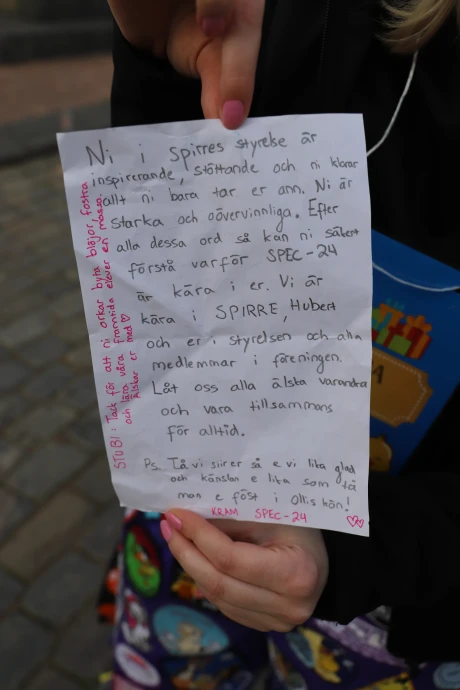 Ni i Spirres styrelse är
inspirerande, stöttande och ni klarar
allt ni bara tar er ann. Ni är
starka och oövervinnliga. Efter
alla dessa ord så kan ni säkert
förstå varför SPEC-24
är kära i er. Vi är
kära i SPIRRE, Hubert
och er i styrelsen och alla
medlemmar i föreningen.
Låt oss alla älska varandra
och vara tillsammans
för alltid.
Ps. Tå vi sir er så e vi lika glad
och känslan e lika som tå
man e föst i Ollis kön!
KRAM SPEC-24
STUBI: Tack för att ni orkar byta blöjor, fostra
och lära våra framtida elever en massa.
Älskar er med